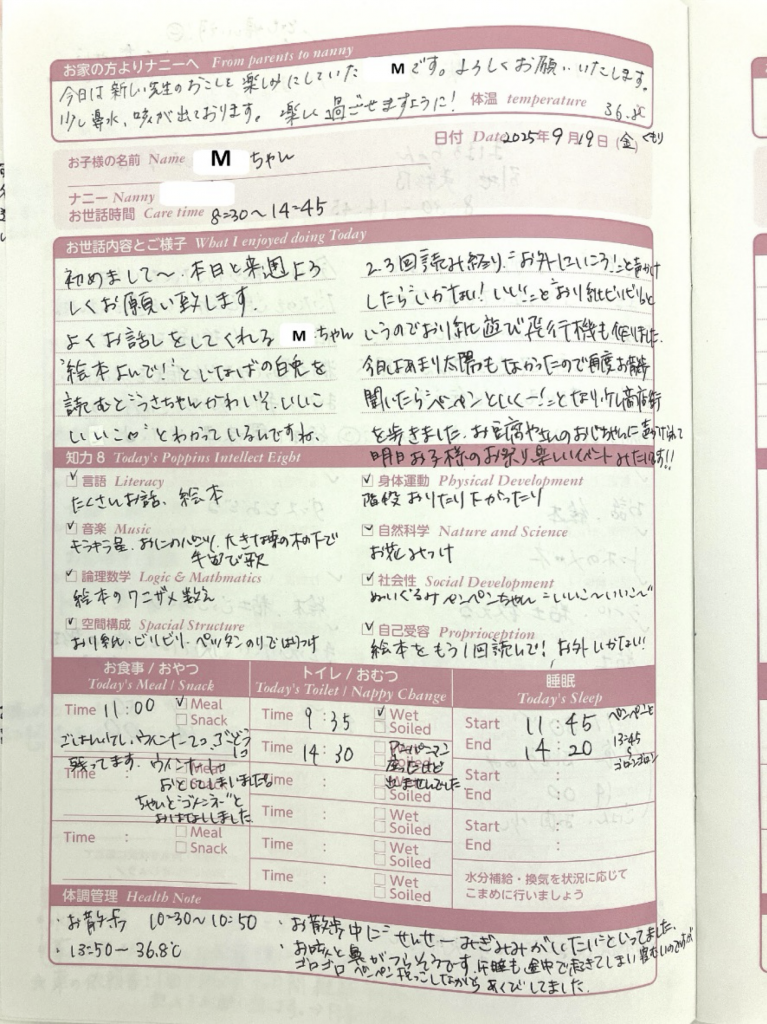 お家の方よりナニーへ From parents to nanny
今日は新しい先生のおこしを楽しみにしていた M です。よろしくお願いいたします。
少し鼻水、咳が出ております。楽しく過ごせますように!
体温 temperature 36.8℃
日付 Date 2025年9月19日(金)くもり
お子様の名前 Name M ちゃん
ナニー Nanny
お世話時間 Care time 8:30〜14:45
お世話内容とご様子 What I enjoyed doing Today
初めまして〜、本日と来週よろ
しくお願い致します。
よくお話しをしてくれる M ちゃん
"絵本よんで!"といなばの白兎を
読むと"うさちゃんかわいそ、いいこ
いいこ♡"とわかっているんですね、
2、3回読み終り、"お外にいこう!"と声かけ
したら"いかない!いい"と"おり紙ビリビリ"と
いうのでおり紙遊び飛行機も作りました。
今日はあまり太陽もなかったので再度お散歩
聞いたら"ペンペンといくー!"となり、商店街
を歩きました。お豆腐やさんのおじちゃんに声かけられて
明日お子様のお祭り楽しいイベントみたいです!!
知力8 Today's Poppins Intellect Eight
言語 Literacy
たくさんお話、絵本
音楽 Music
キラキラ星、おにのパンツ、大きな栗の木の下で
手遊び歌
論理数学 Logic & Mathmatics
絵本のワニザメ数え
空間構成 Spacial Structure
おり紙、ビリビリ・ペッタンのりではりつけ
身体運動 Physical Development
階段おりたり上がったり
自然科学 Nature and Science
お花みつけ
社会性 Social Development
ぬいぐるみペンペンちゃん"いいこ〜いいこ〜"
自己受容 Proprioception
絵本をもう1回読んで!お外いかない!!
お食事/おやつ
Today's Meal / Snack
Time 11:00 Meal
Snack
ごはん ウィンナー2つ ぶどう
残ってます。ウィンナー1コ
おとしてしまいましたら
ちゃんと"ゴメンネー"と
おはなししました
Time : Meal
Snack
Time : Meal
Snack
トイレ/おむつ
Today's Toilet / Nappy Change
Time 9:35 Wet
Soiled
Time 14:30 Wet
Soiled
アンパンマン
座ったけど
出ませんでした
Time : Wet
Soiled
Time : Wet
Soiled
Time : Wet
Soiled
睡眠
Today's Sleep
Start 11:45 ペンペンと
End 14:20 13:45
ゴロンゴロン
Start :
End :
Start :
End :
水分補給・換気を状況に応じて
こまめに行いましょう
体調管理 Health Note
・お散歩 10:30〜10:50
・13:50〜36.8℃
・お散歩中に"せんせーみぎみみがいたい"といってました。
・お咳と鼻がつらそうです。午睡も途中で起きてしまい
ゴロゴロ ペンペン抱っこしながら あくびしてました。